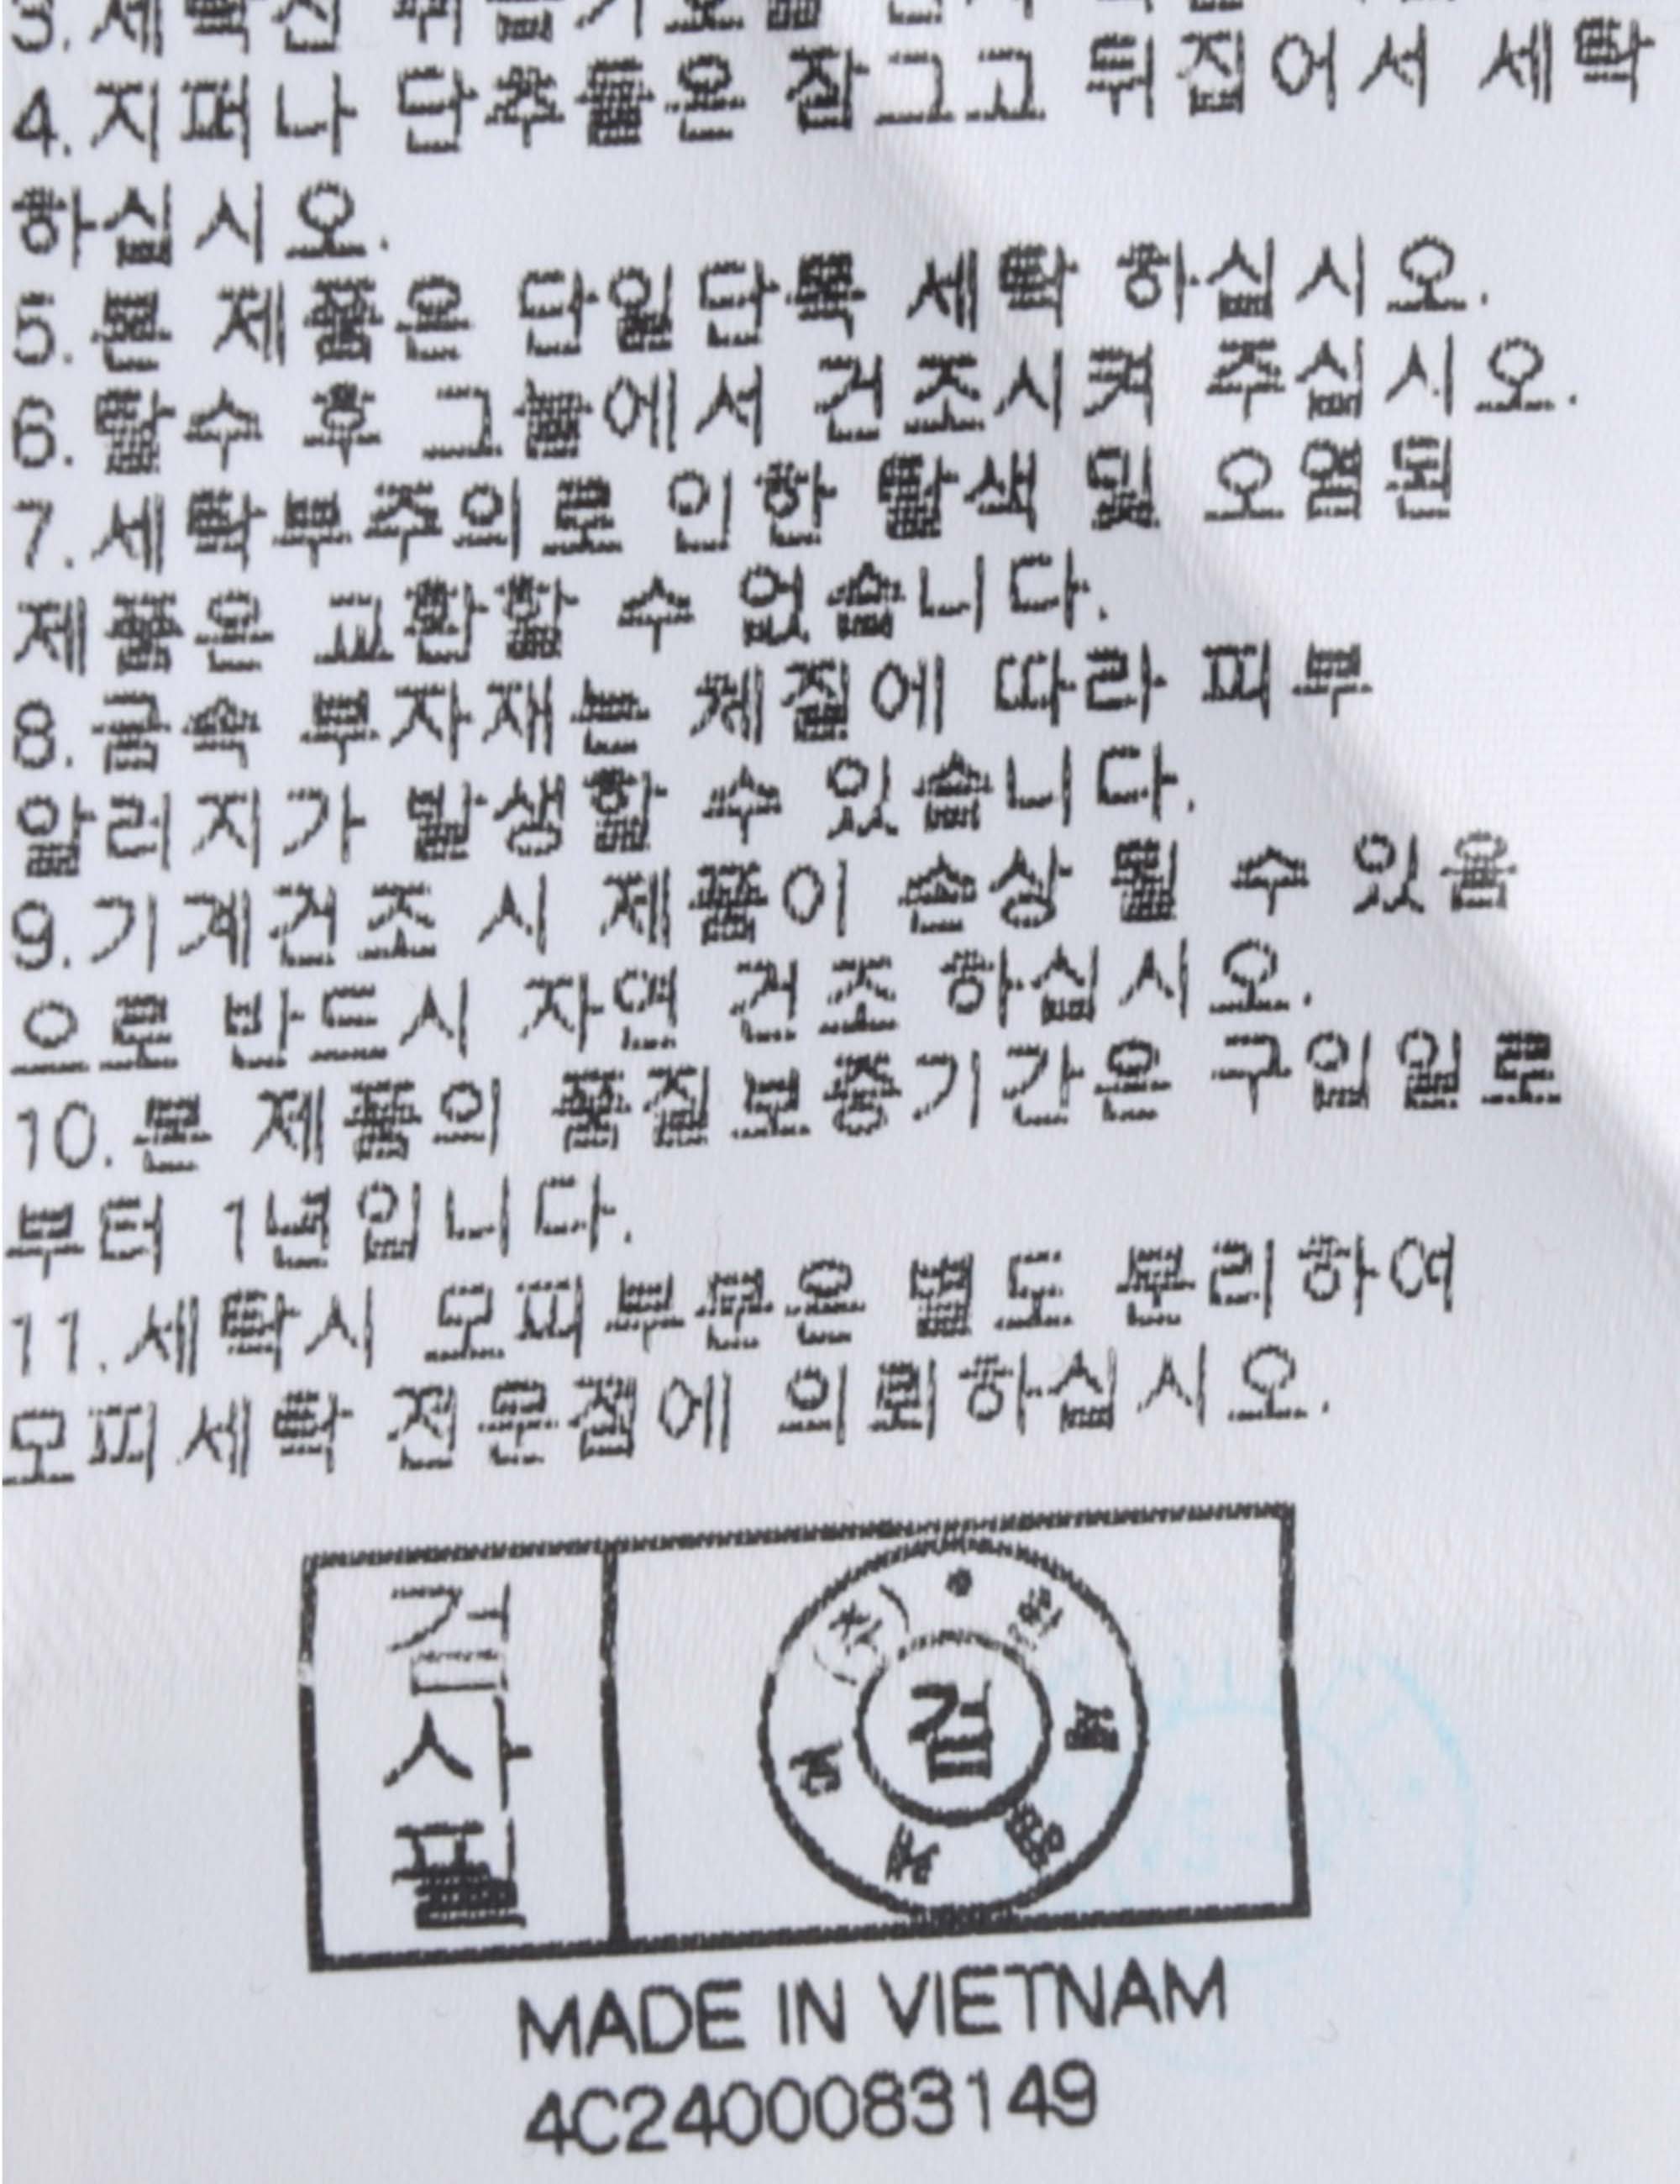 3.세탁전 취급기호를
4.지퍼나 단추들은 잠그고 뒤집어서 세탁
하십시오.
5.본 제품은 단일단독 세탁 하십시오.
6.탈수 후 그늘에서 건조시켜 주십시오.
7.세탁부주의로 인한 탈색 및 오염된
제품은 교환할 수 없습니다.
8.금속 부자재는 체질에 따라 피부
알러지가 발생할 수 있습니다.
9.기계건조 시 제품이 손상 될 수 있음
으로 반드시 자연 건조 하십시오.
10.본 제품의 품질보증기간은 구입일로
부터 1년입니다.
11.세탁시 모피부분은 별도 분리하여
모피세탁 전문점에 의뢰하십시오.
검사필
검
MADE IN VIETNAM
4C2400083149